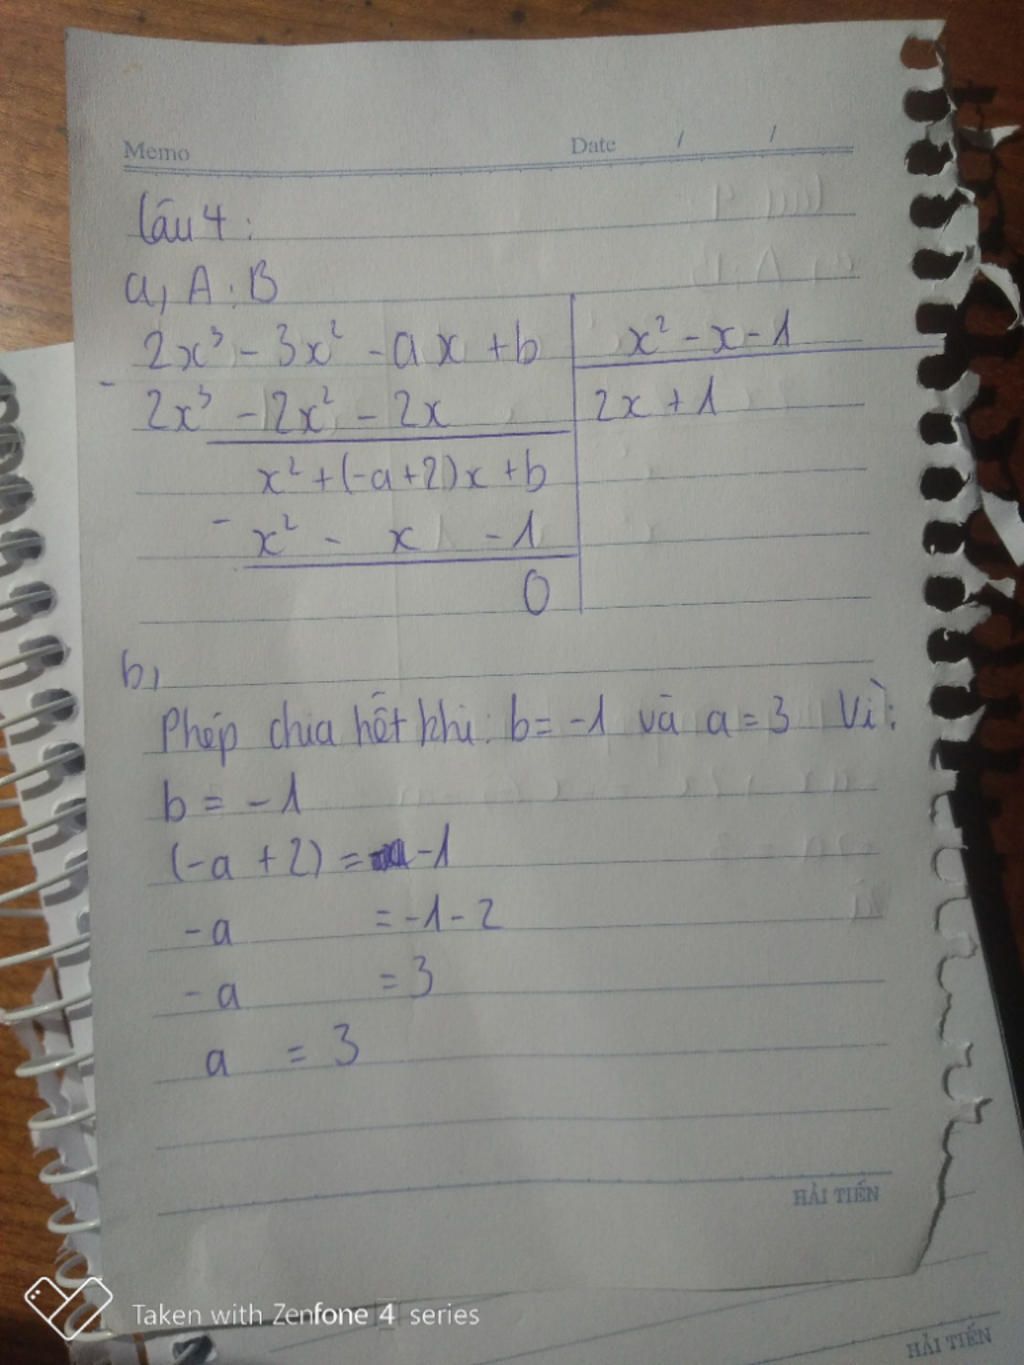 Memo Date / /
Câu 4:
a, A : B
2x³ - 3x² - ax + b x² - x - 1
- 2x³ - 2x² - 2x 2x + 1
x² + (-a+2)x + b
- x² - x - 1
0
b,
Phép chia hết khi: b = -1 và a = 3 Vì:
b = -1
(-a + 2) = -1
-a = -1 - 2
-a = 3
a = 3
HẢI TIẾN
Taken with Zenfone 4 series
HẢI TIẾN